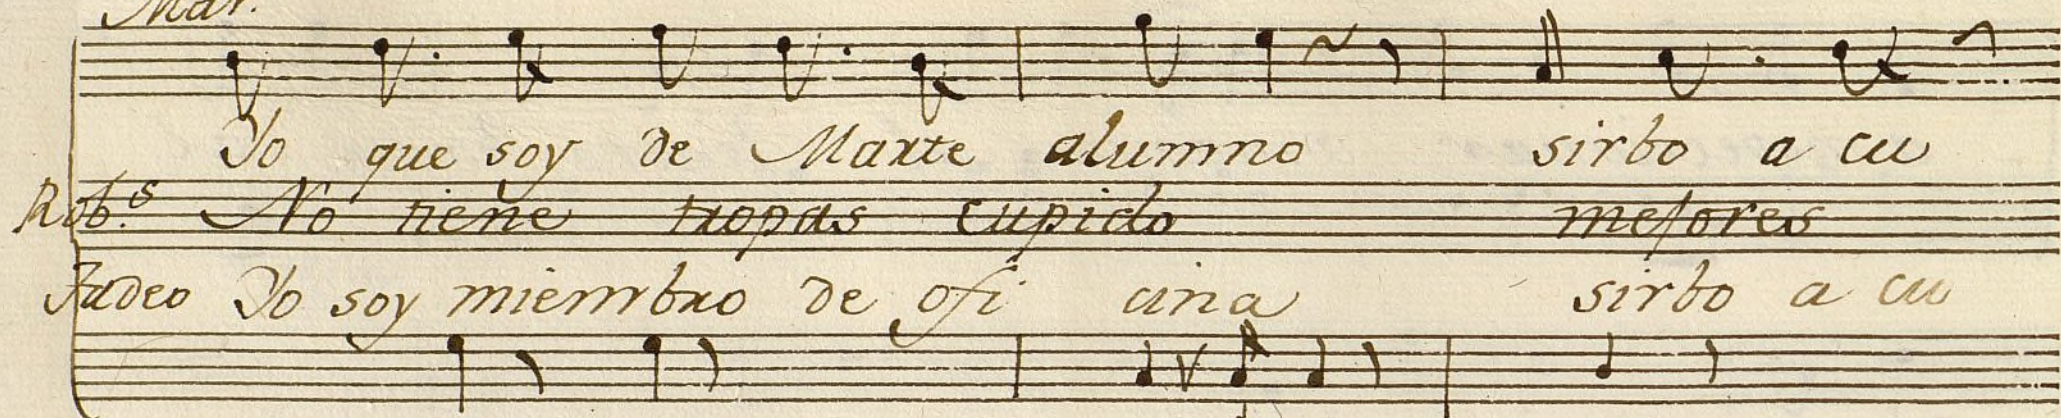 Mar.
Yo que soy de Marte alumno sirbo a cu
Rob.s No tiene tropas cupido mejores
Tadeo Yo soy miembro de ofi cina sirbo a cu